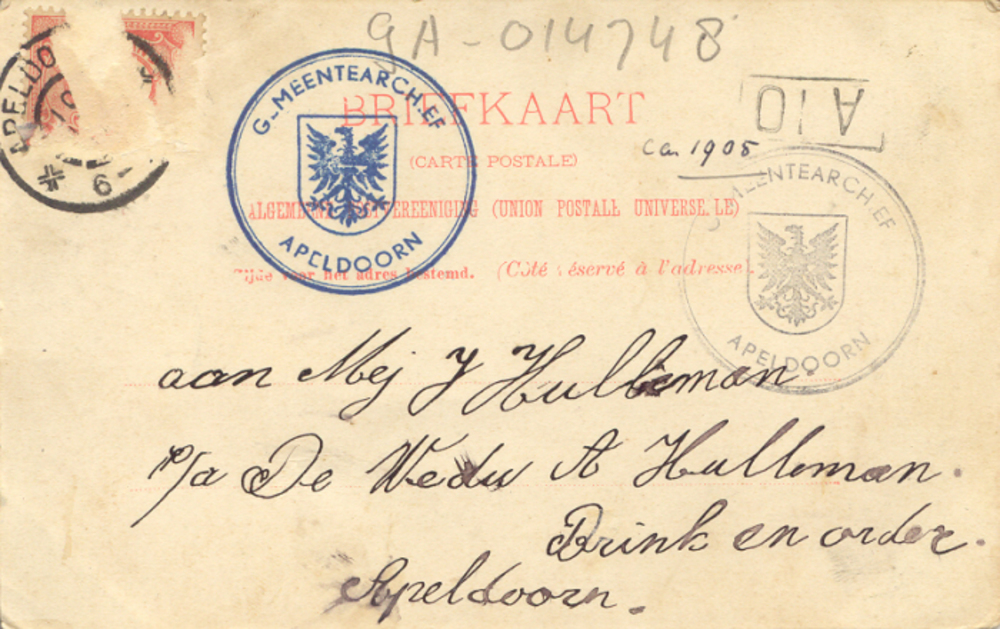 GA-014748
APELDO
6
GEMEENTEARCHIEF
APELDOORN
BRIEFKAART
(CARTE POSTALE)
AIO
ca. 1905
ALGEMEENE POSTVEREENIGING (UNION POSTALE UNIVERSELLE)
Zijde voor het adres bestemd. (Côté réservé à l'adresse).
GEMEENTEARCHIEF
APELDOORN
aan Mej J Hulleman.
p/a De Wedu A Hulleman.
Brink en order.
Apeldoorn.